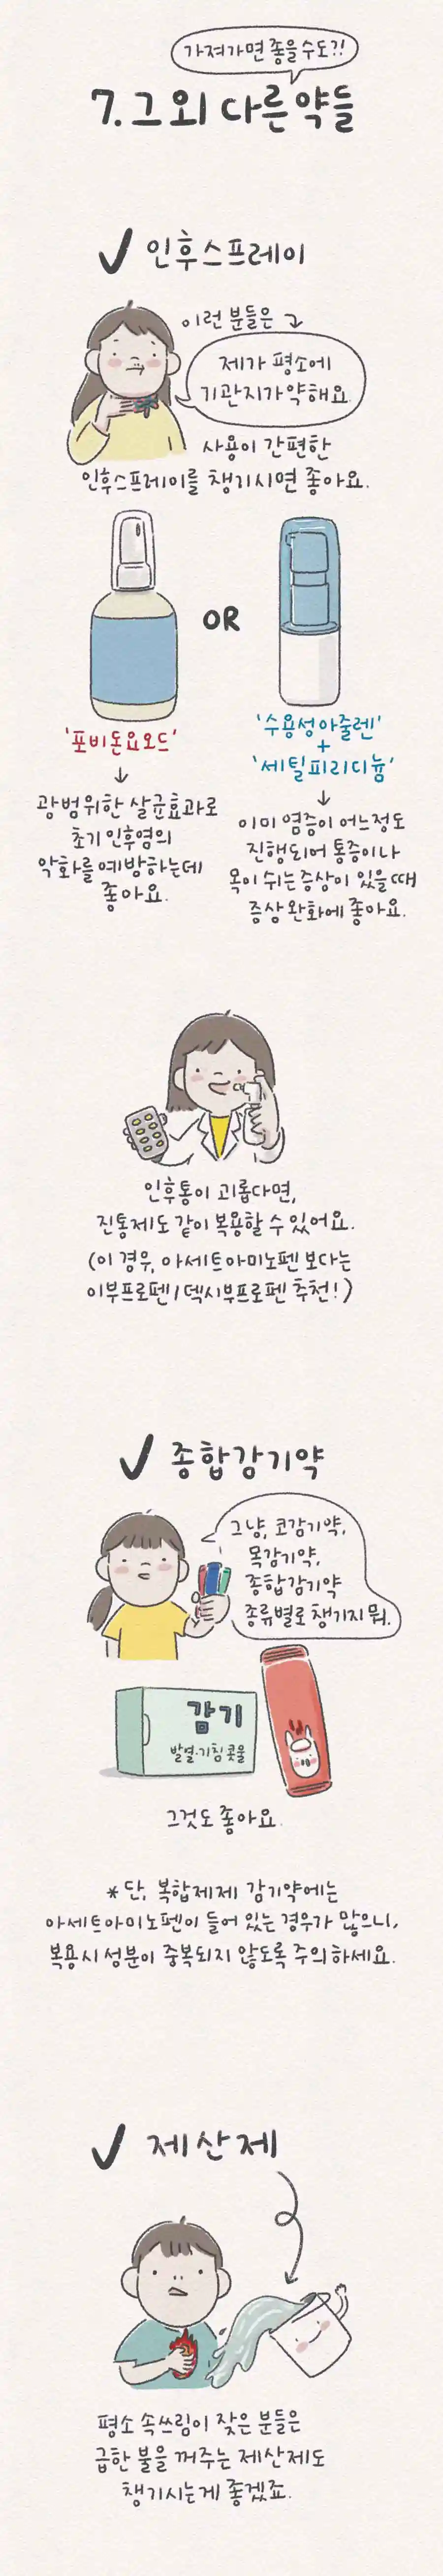 가져가면 좋을수도?!
7. 그 외 다른약들
✓ 인후스프레이
이런 분들은
제가 평소에
기관지가약해요.
사용이 간편한
인후스프레이를 챙기시면 좋아요.
OR
'포비돈요오드'
↓
광범위한 살균효과로
초기 인후염의
악화를 예방하는데
좋아요.
'수용성아줄렌'
+
'세틸피리디늄'
↓
이미 염증이 어느정도
진행되어 통증이나
목이 쉬는 증상이 있을 때
증상 완화에 좋아요.
인후통이 괴롭다면,
진통제도 같이 복용할 수 있어요.
(이 경우, 아세트아미노펜 보다는
이부프로펜/덱시부프로펜 추천!)
✓ 종합감기약
그냥, 코감기약,
목감기약,
종합감기약
종류별로 챙기지 뭐.
감기
발열·기침 콧물
그것도 좋아요.
* 단, 복합제제 감기약에는
아세트아미노펜이 들어 있는 경우가 많으니,
복용시 성분이 중복되지 않도록 주의하세요.
✓ 제산제
평소 속쓰림이 잦은 분들은
급한 불을 꺼주는 제산제도
챙기시는게 좋겠죠.